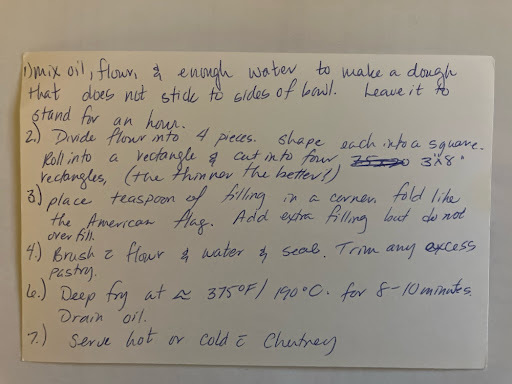 1) mix oil, flour, & enough water to make a dough
that does not stick to sides of bowl. Leave it to
stand for an hour.
2.) Divide flour into 4 pieces. shape each into a square.
Roll into a rectangle & cut into four 3"x8"
rectangles, (the thinner the better!)
3) place teaspoon of filling in a corner. fold like
the American flag. Add extra filling but do not
over fill.
4.) Brush c̄ flour & water & seal. Trim any excess
pastry.
6.) Deep fry at ≈ 375°F/190°C. for 8-10 minutes.
Drain oil.
7.) Serve hot or cold c̄ Chutney